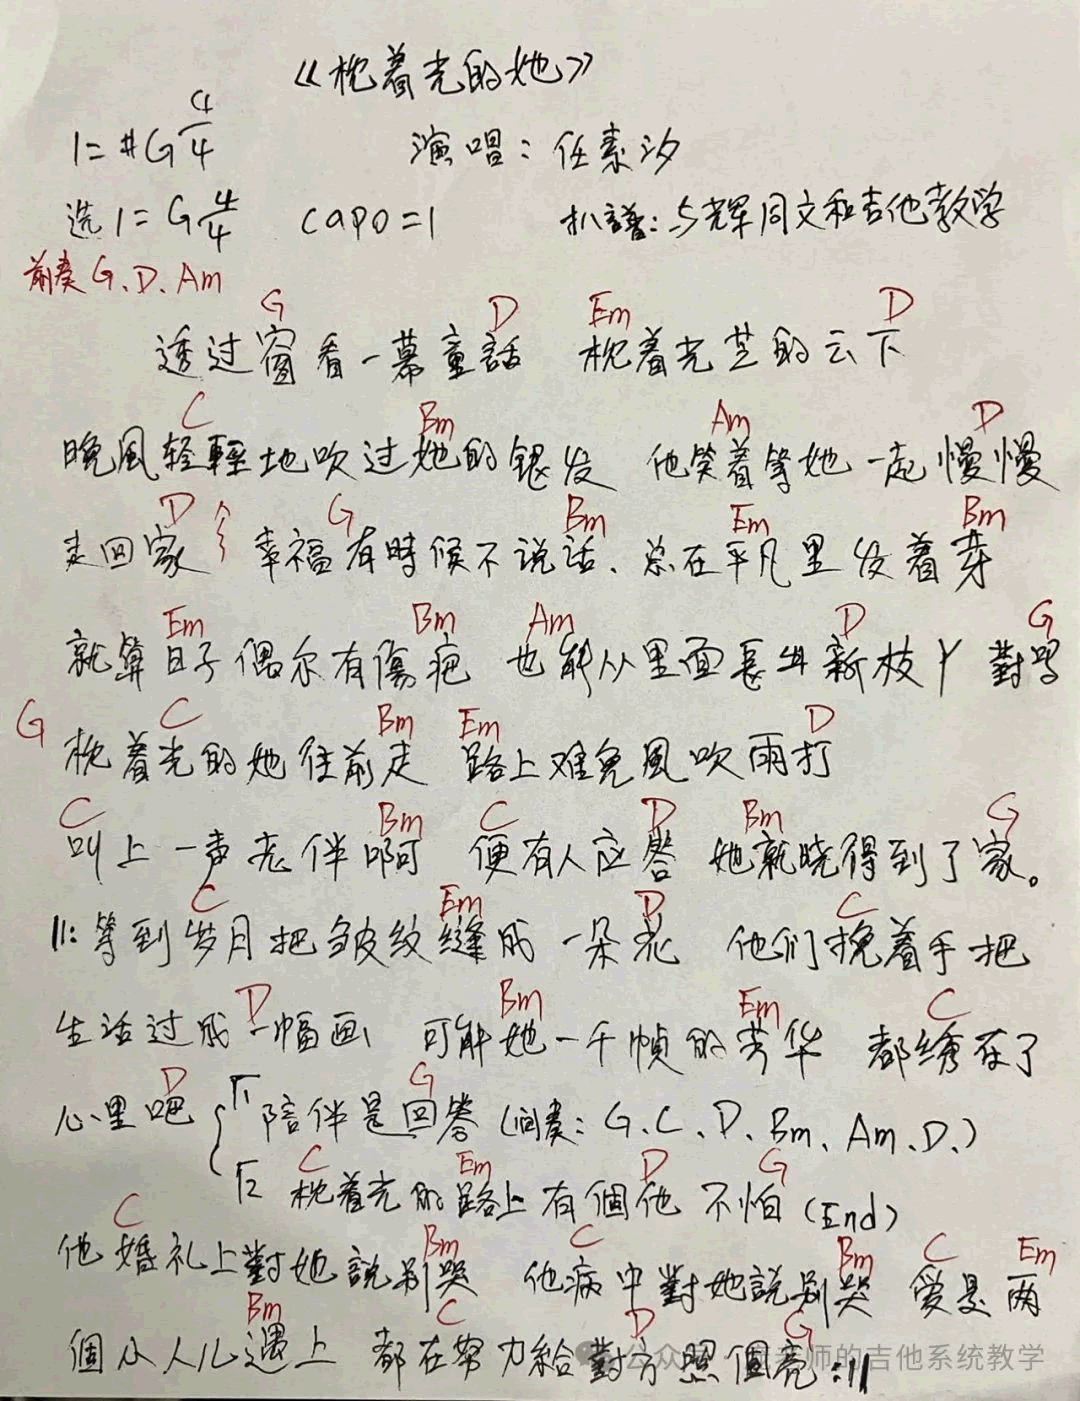 《枕着光的她》
1=#G 4/4 演唱：任素汐
选1=G 4/4 capo=1 扒譜：与輝同文和吉他教学
前奏G、D、Am
G D Em D
透过窗看一幕童話 枕着光芝的云下
C Bm Am D
晚風轻輕地吹过她的银发 他笑着等她一起慢慢
D G Bm Em Bm
走回家 幸福有時候不说话、总在平凡里发着芽
Em Bm Am D G
就算日子偶尔有傷疤 也能从里面長出新枝丫 對嗎
G C Bm Em D
枕着光的她往前走 路上难免風吹雨打
C Bm C D Bm G
叫上一声老伴啊 便有人应答 她就晓得到了家。
C Em D C
‖:等到岁月把皱纹缝成一朵花 他们挽着手把
D Bm Em C
生活过成一幅画 可能她一千幀的芳华 都绣在了
D G
心里吧 1 陪伴是回答（间奏：G、C、D、Bm、Am、D、）
C Em D G
2 枕着光的路上有個他 不怕（End）
C Bm C Bm C Em
他婚礼上對她説别哭 他病中對她説别哭 爱是两
Bm C D G
個人儿遇上 都在努力給對方照個亮:‖
公众号 老师的吉他系统教学